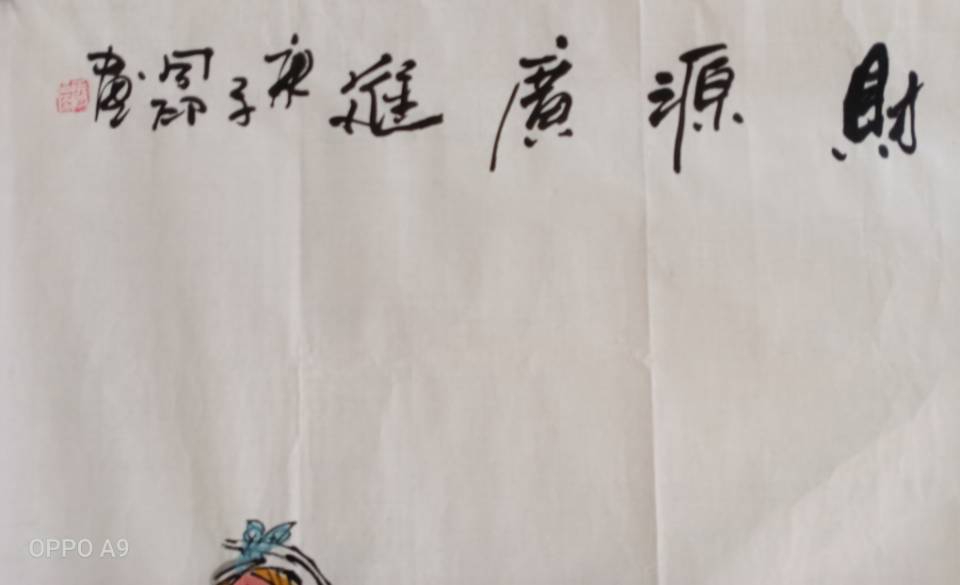 財源廣進庚子周節畫
OPPO A9